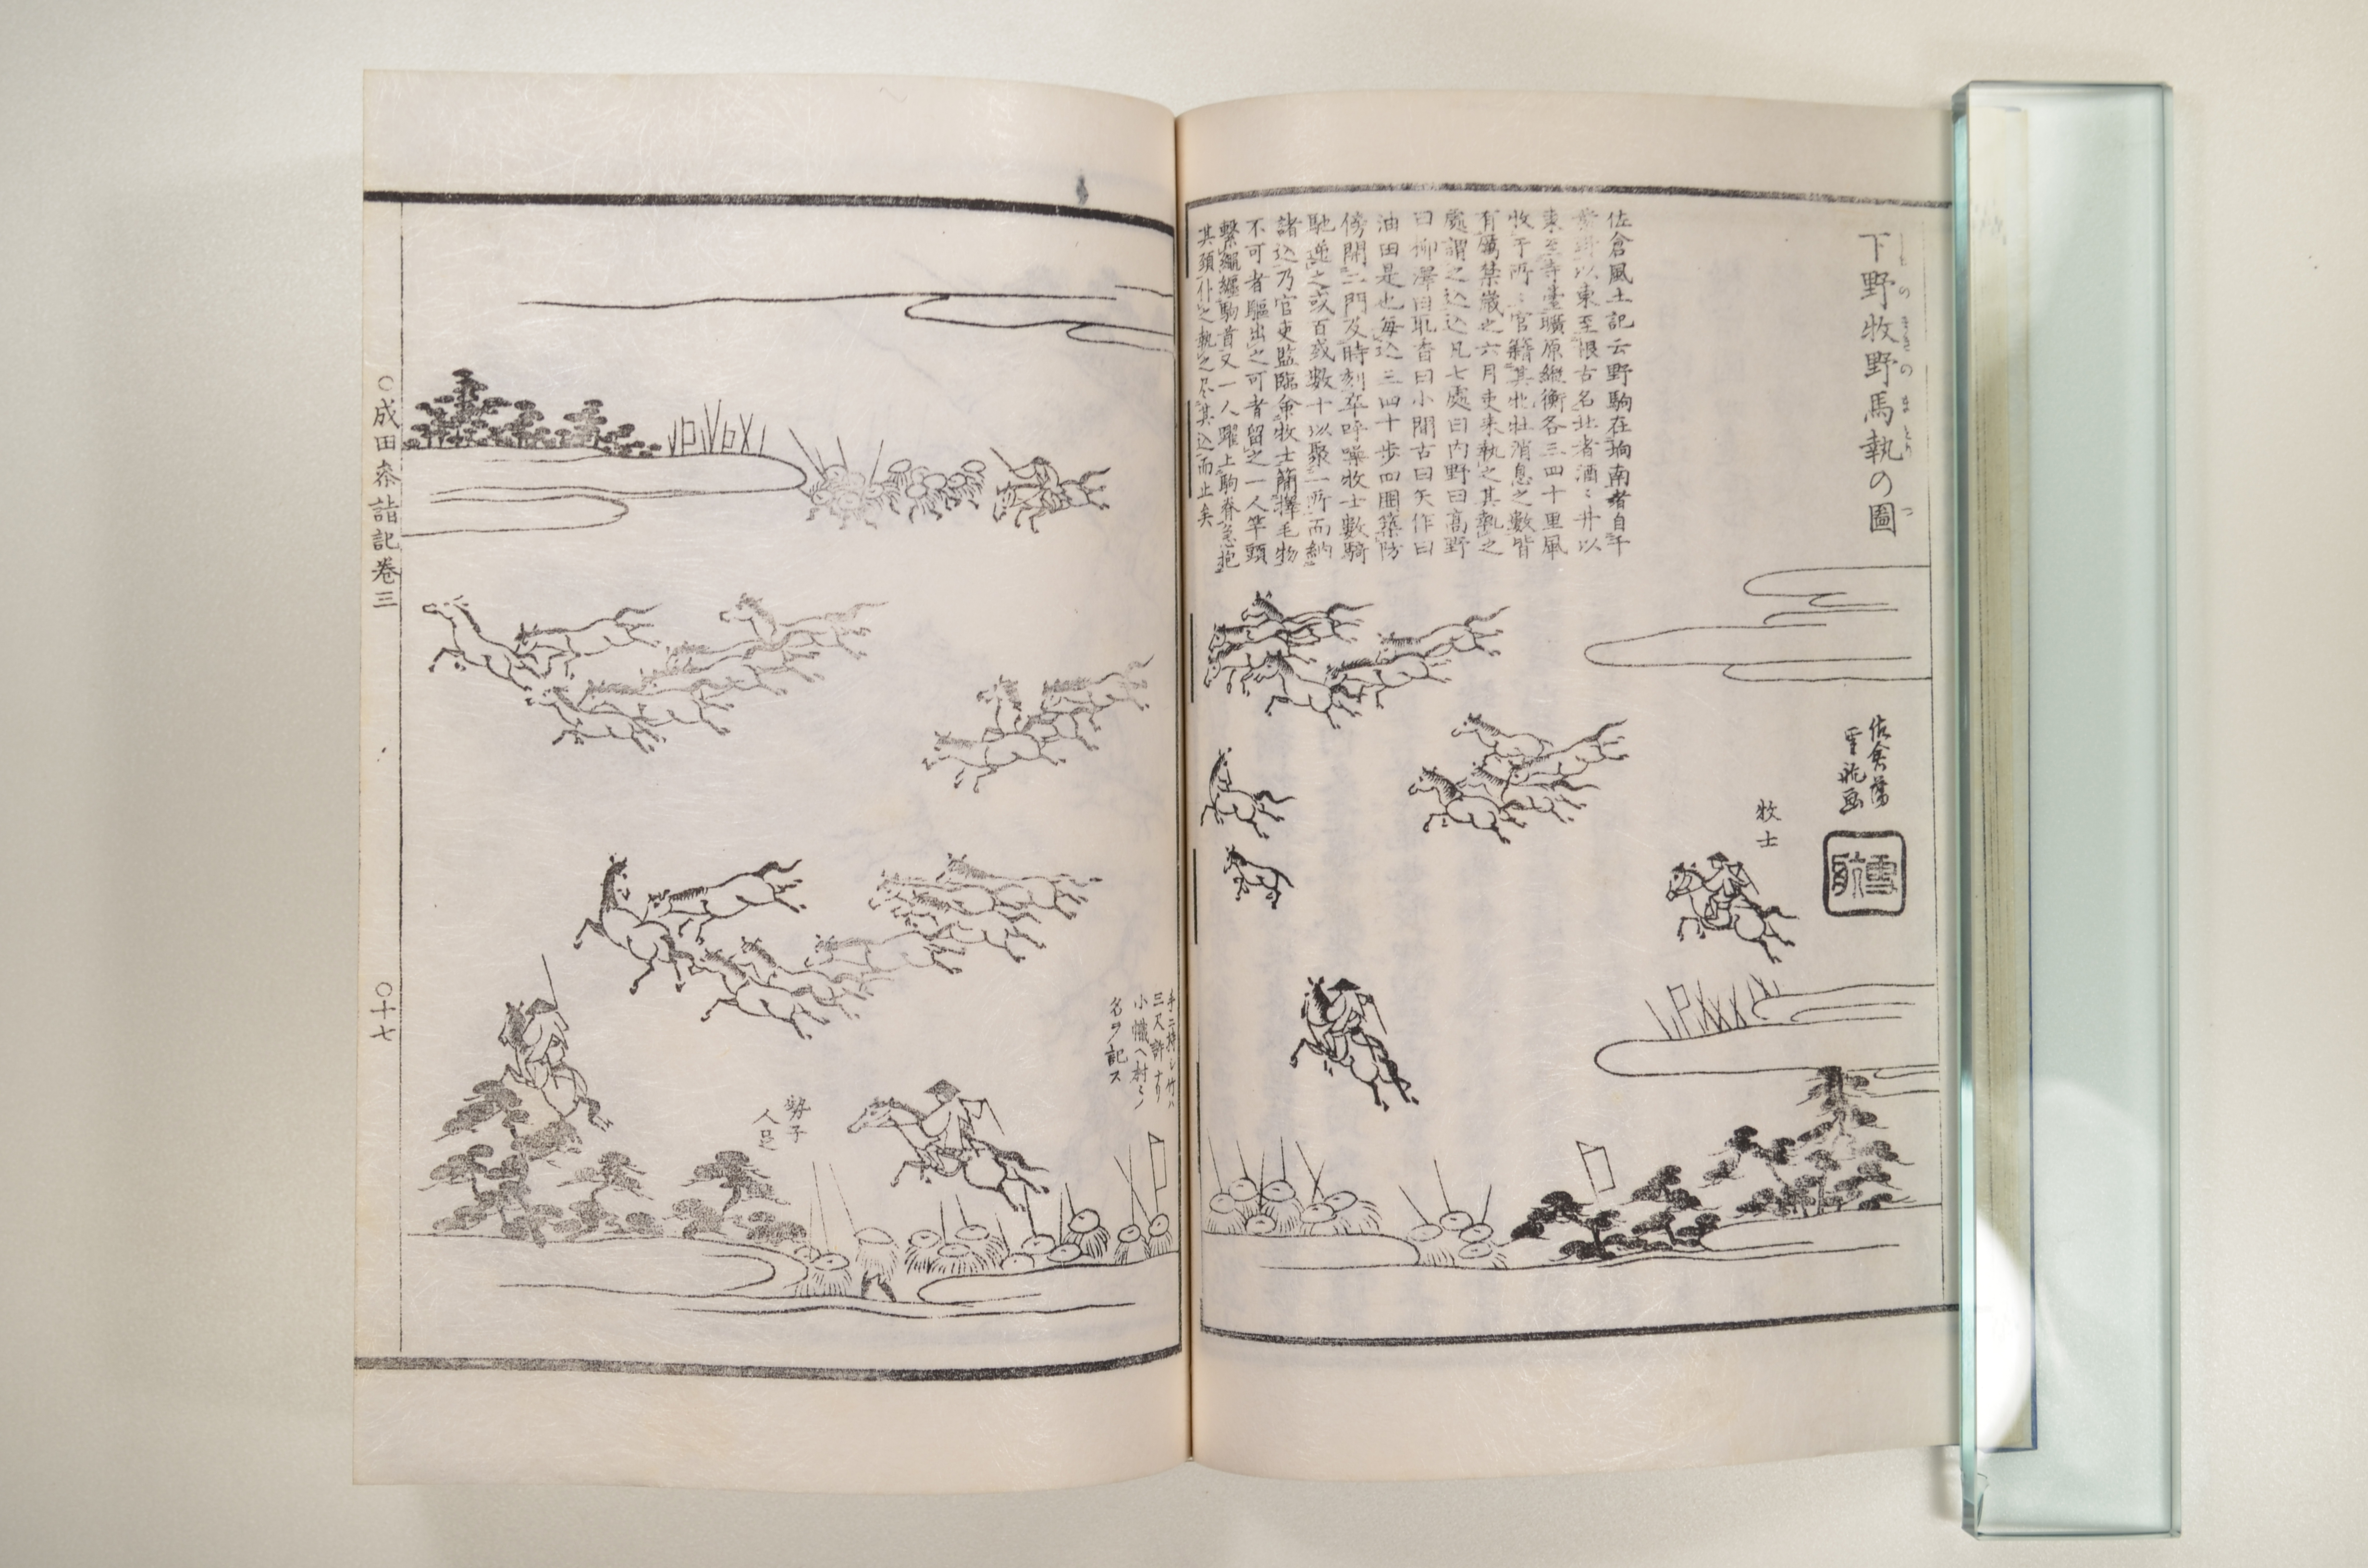 下野牧野馬執の圖
しものまきのまとりのづ
佐倉風土記云野駒在垧南者自千
葉野以東至恨古名北者酒々井以
東至寺臺曠原縦衡各三四十里風
牧于所々官籍其牝牡消息之數皆
有厲禁歳之六月吏来執之其執之
處謂之込込凡七處曰内野曰高野
曰柳澤曰取香曰小間古曰矢作曰
油田是也毎込三四十歩四圍築防
傍開二門及時刻卒呼噪牧士數騎
馳逆之或百或數十以聚一所而納
諸込乃官吏監臨命牧士簡擇毛物
不可者驅出之可者留之一人竿頭
繋繩纒駒首又一人躍上駒脊急抱
其頭仆之執之尽其込而止矣
佐倉藩
雪舩画
牧士
手ニ持シ竹ハ
三尺許ナリ
小幟ヘ村々ノ
名ヲ記ス
勢子
人足
○成田参詣記巻三
○十七